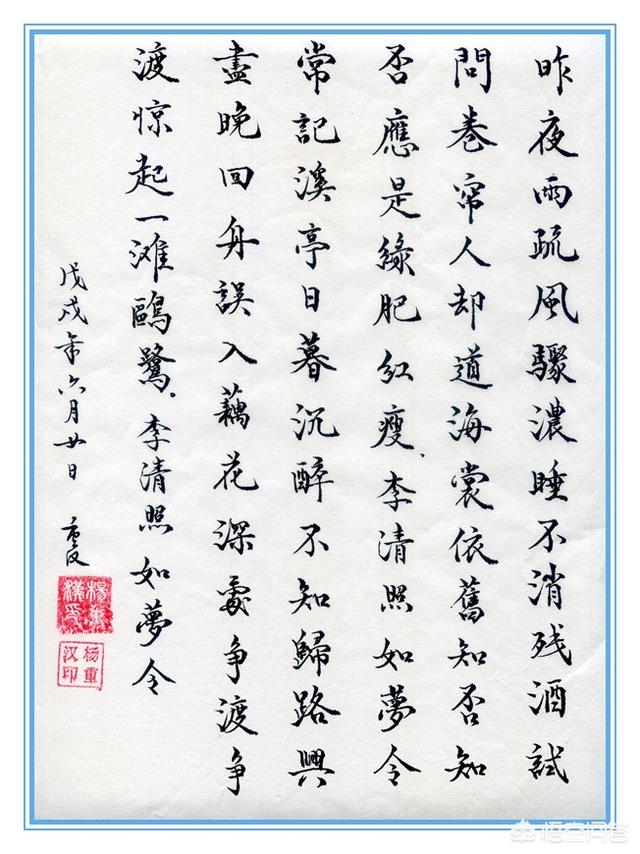 昨夜雨疏風驟濃睡不消残酒試
問卷帘人却道海裳依舊知否知
否應是綠肥紅瘦、李清照如夢令
常記溪亭日暮沉醉不知歸路興
盡晚回舟誤入藕花深處争渡争
渡惊起一滩鷗鷺、李清照如夢令
戊戌年六月廿日
杨重汉印
悟空问答